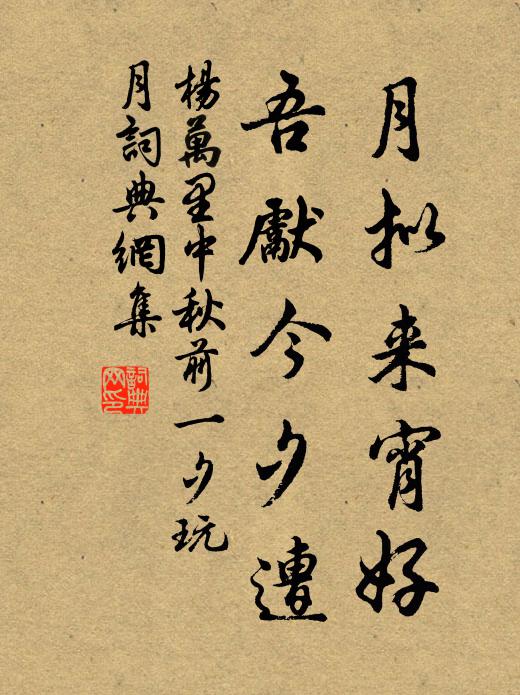 月拟来宵好
吾獻今夕遭
楊萬里中秋前一夕玩
月詞典網集
詞典網印